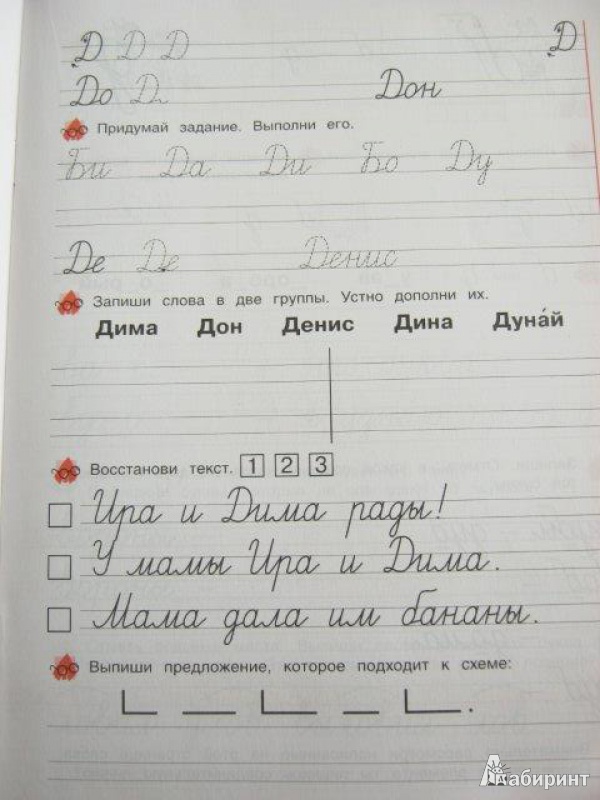 Д Д Д Д
До Д Дон
Придумай задание. Выполни его.
Би Да Ди Бо Ду
Де Де Денис
Запиши слова в две группы. Устно дополни их.
Дима Дон Денис Дина Дуна́й
Восстанови текст. 1 2 3
Ира и Дима рады!
У мамы Ира и Дима.
Мама дала им бананы.
Выпиши предложение, которое подходит к схеме:
Лабиринт